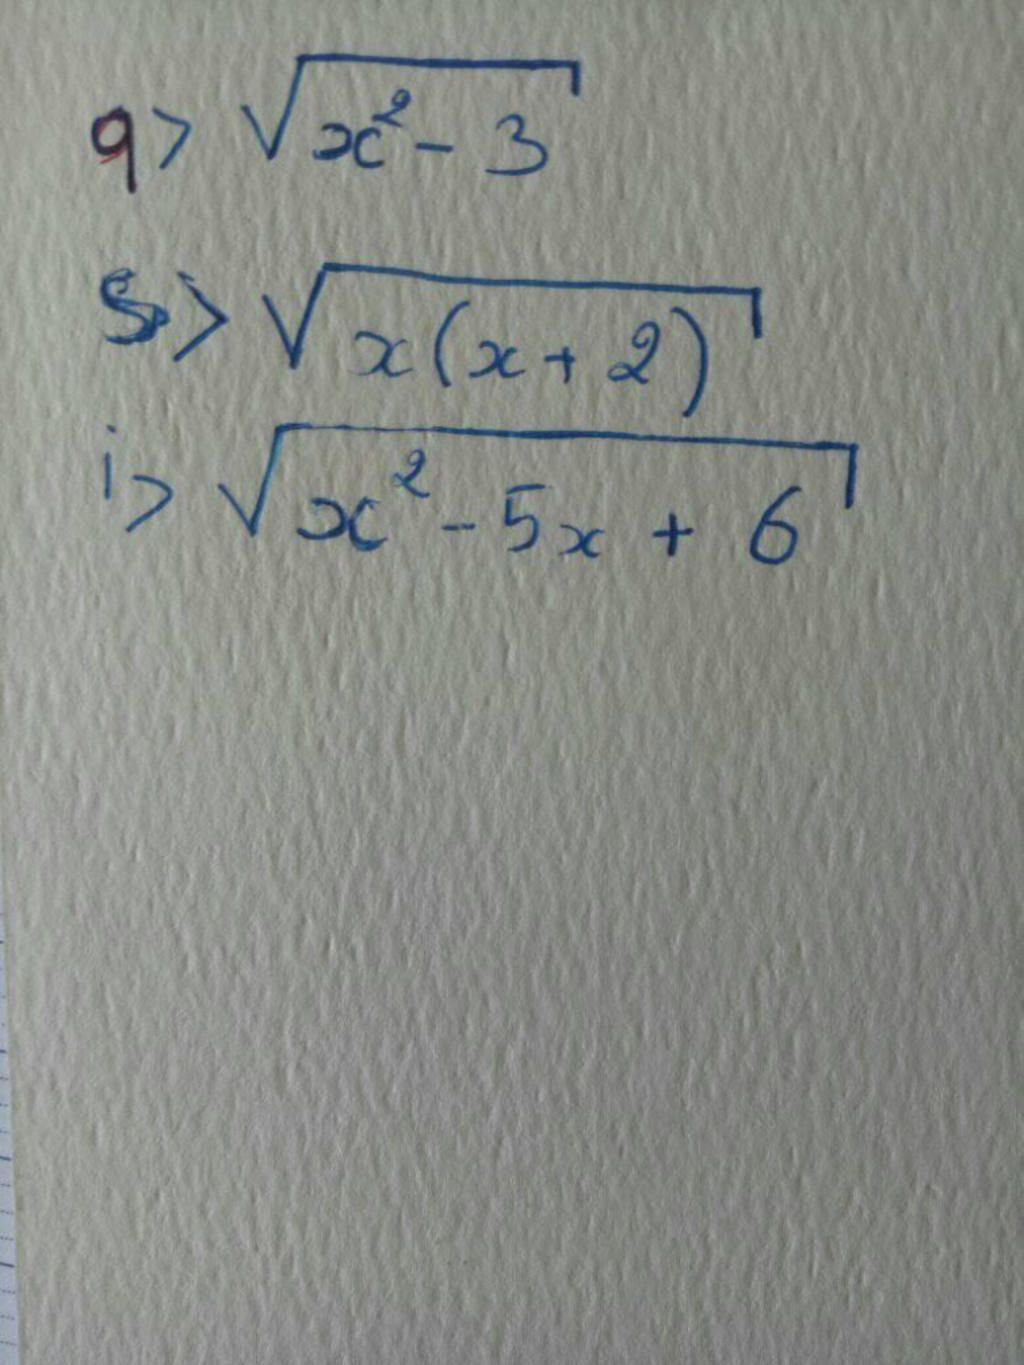 q> √x² - 3
S> √x(x + 2)
i> √x² - 5x + 6